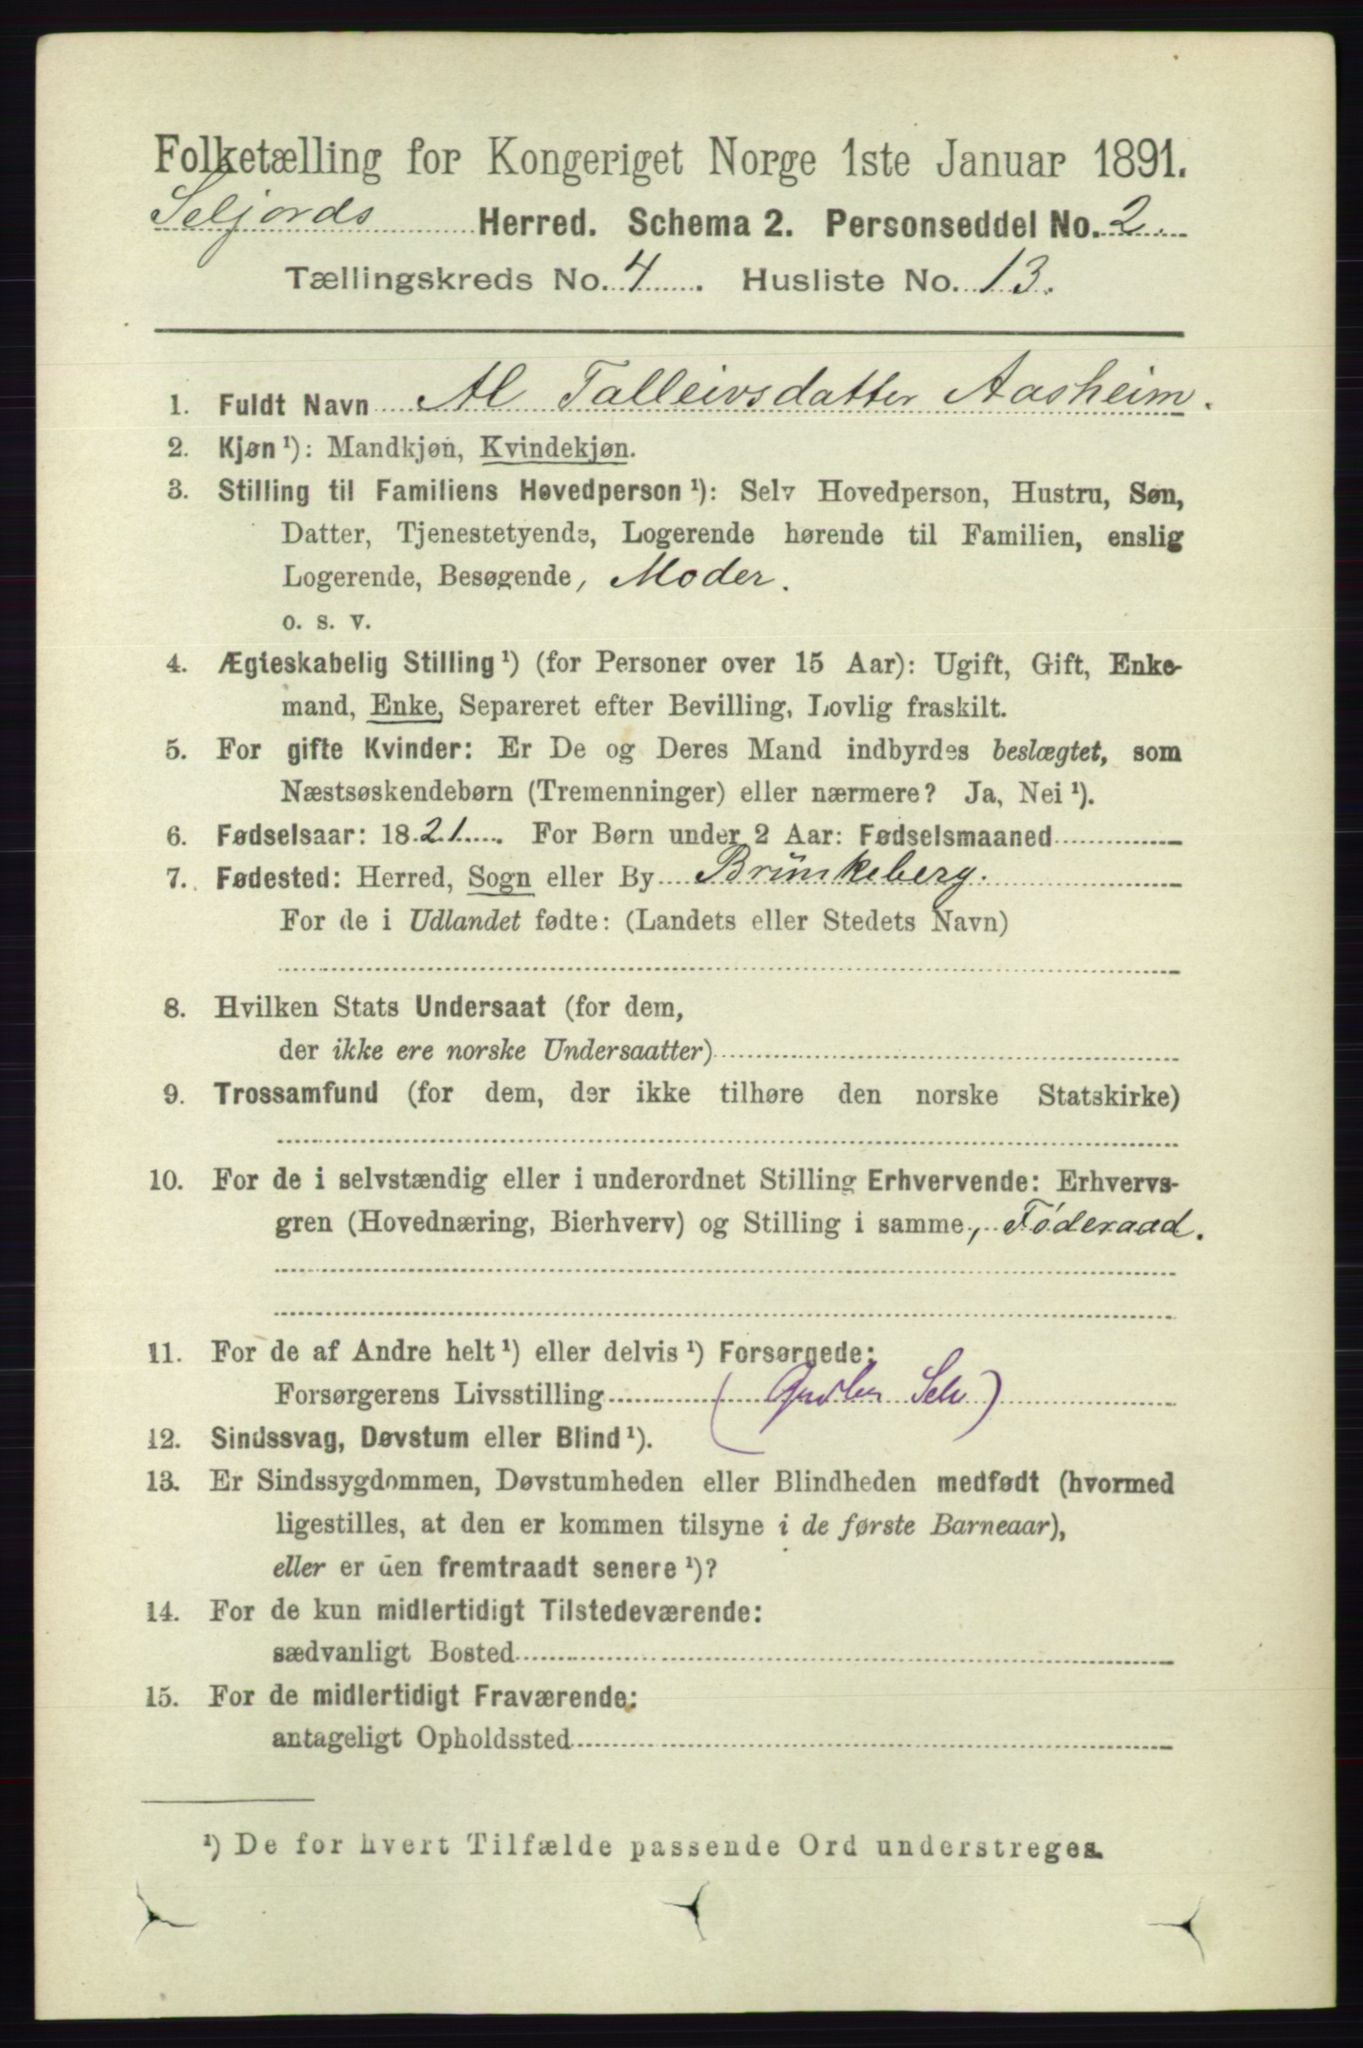 Folketælling for Kongeriget Norge 1ste Januar 1891.
Seljords Herred. Schema 2. Personseddel No. 2.
Tællingskreds No. 4. Husliste No. 13.
1. Fuldt Navn Al Talleivsdatter Aasheim.
2. Kjøn¹): Mandkjøn, Kvindekjøn.
3. Stilling til Familiens Hovedperson¹): Selv Hovedperson, Hustru, Søn,
Datter, Tjenestetyende, Logerende hørende til Familien, enslig
Logerende, Besøgende, Moder.
o. s. v.
4. Ægteskabelig Stilling¹) (for Personer over 15 Aar): Ugift, Gift, Enke-
mand, Enke, Separeret efter Bevilling, Lovlig fraskilt.
5. For gifte Kvinder: Er De og Deres Mand indbyrdes beslægtet, som
Næstsøskendebørn (Tremenninger) eller nærmere? Ja, Nei¹).
6. Fødselsaar: 1821. For Børn under 2 Aar: Fødselsmaaned
7. Fødested: Herred, Sogn eller By Brunkeberg.
For de i Udlandet fødte: (Landets eller Stedets Navn)
8. Hvilken Stats Undersaat (for dem,
der ikke ere norske Undersaatter)
9. Trossamfund (for dem, der ikke tilhøre den norske Statskirke)
10. For de i selvstændig eller i underordnet Stilling Erhvervende: Erhvervs-
gren (Hovednæring, Bierhverv) og Stilling i samme, Føderaad.
11. For de af Andre helt¹) eller delvis¹) Forsørgede:
Forsørgerens Livsstilling
12. Sindssvag, Døvstum eller Blind¹).
13. Er Sindssygdommen, Døvstumheden eller Blindheden medfødt (hvormed
ligestilles, at den er kommen tilsyne i de første Barneaar),
eller er den fremtraadt senere¹)?
14. For de kun midlertidigt Tilstedeværende:
sædvanligt Bosted
15. For de midlertidigt Fraværende:
antageligt Opholdssted
¹) De for hvert Tilfælde passende Ord understreges.